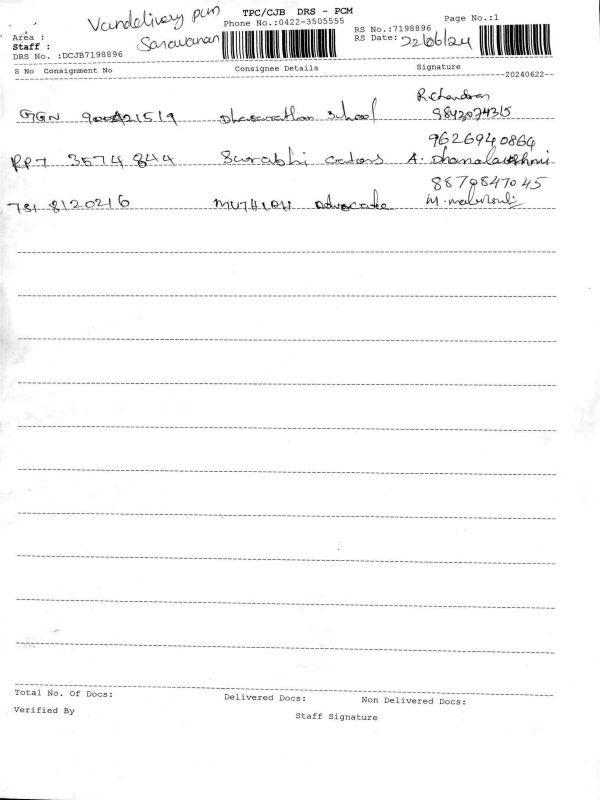 Vandelivery pcm TPC/CJB DRS - PCM Page No.:1
Phone No.:0422-3505555 RS No.:7198896
Area : RS Date: 22/06/24
Staff : Sarawanan
DRS No. :DCJB7198896
S No Consignment No Consignee Details Signature
20240622
R. Chandran
GGN 21519 Dhasarathan School
9626940864
RPT 3574844 Surabhi A. Dhanalakshmi
8870847045
8120216 MUTHIAH Advocate
Total No. Of Docs: Delivered Docs: Non Delivered Docs:
Verified By Staff Signature